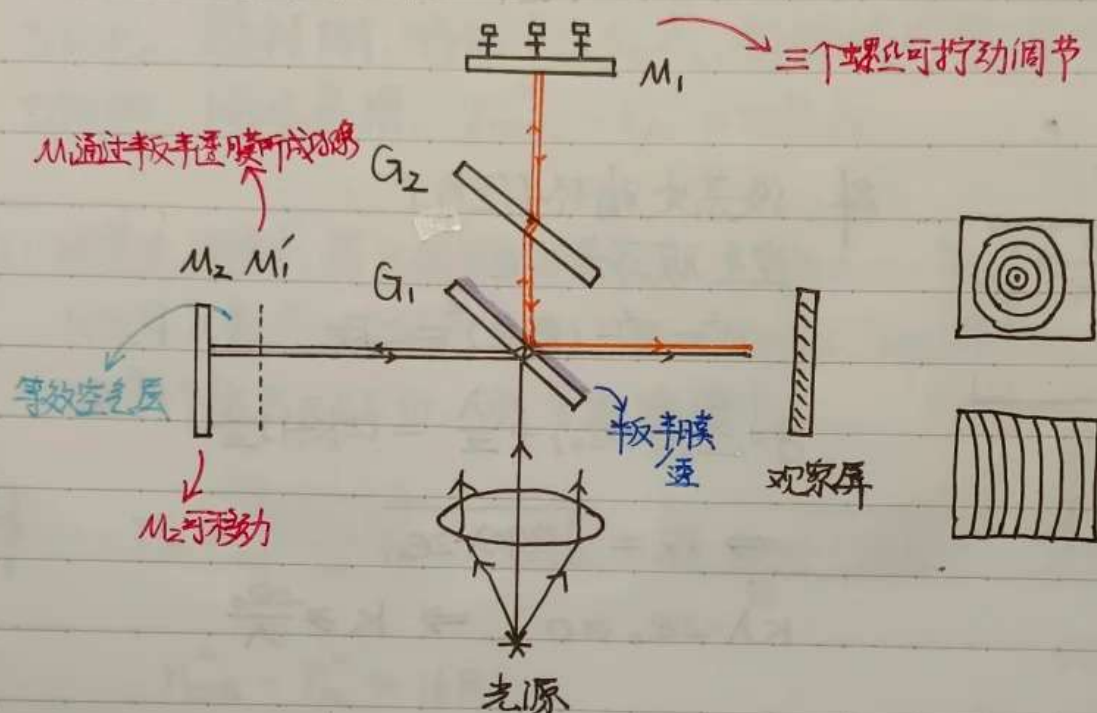 M₁
三个螺丝可拧动调节
M₁通过半反半透膜所成的像
G₂
M₂ M₁′
G₁
等效空气层
半反半膜
透
观察屏
M₂可移动
光源